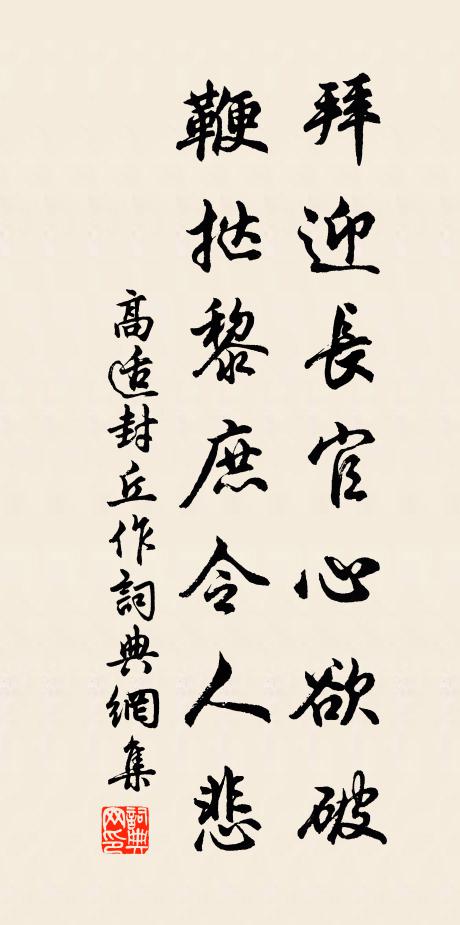 拜迎長官心欲破
鞭挞黎庶令人悲
高适封丘作詞典網集
詞典网印